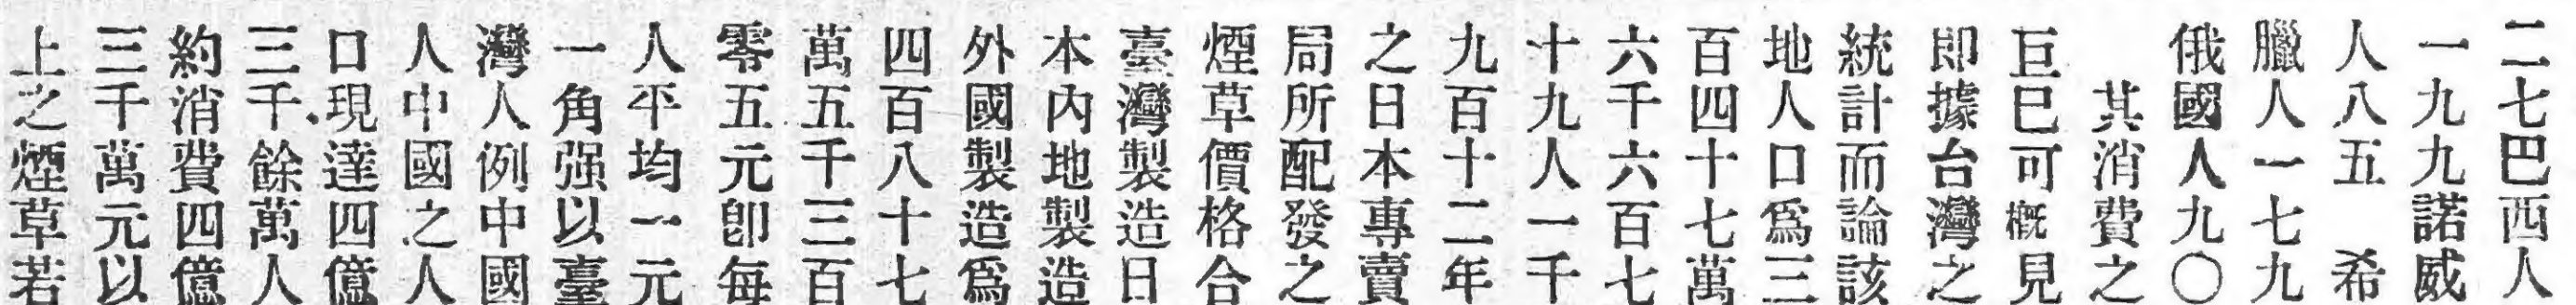 二七巴西人
一九九諾威
人八五　希
臘人一七九
俄國人九〇
其消費之
巨已可概見
即據台灣之
統計而論該
地人口爲三
百四十七萬
六千六百七
十九人一千
九百十二年
之日本專賣
局所配發之
煙草價格合
臺灣製造日
本內地製造
外國製造爲
四百八十七
萬五千三百
零五元卽每
人平均一元
一角强以臺
灣人例中國
人中國之人
口現達四億
三千餘萬人
約消費四億
三千萬元以
上之煙草若